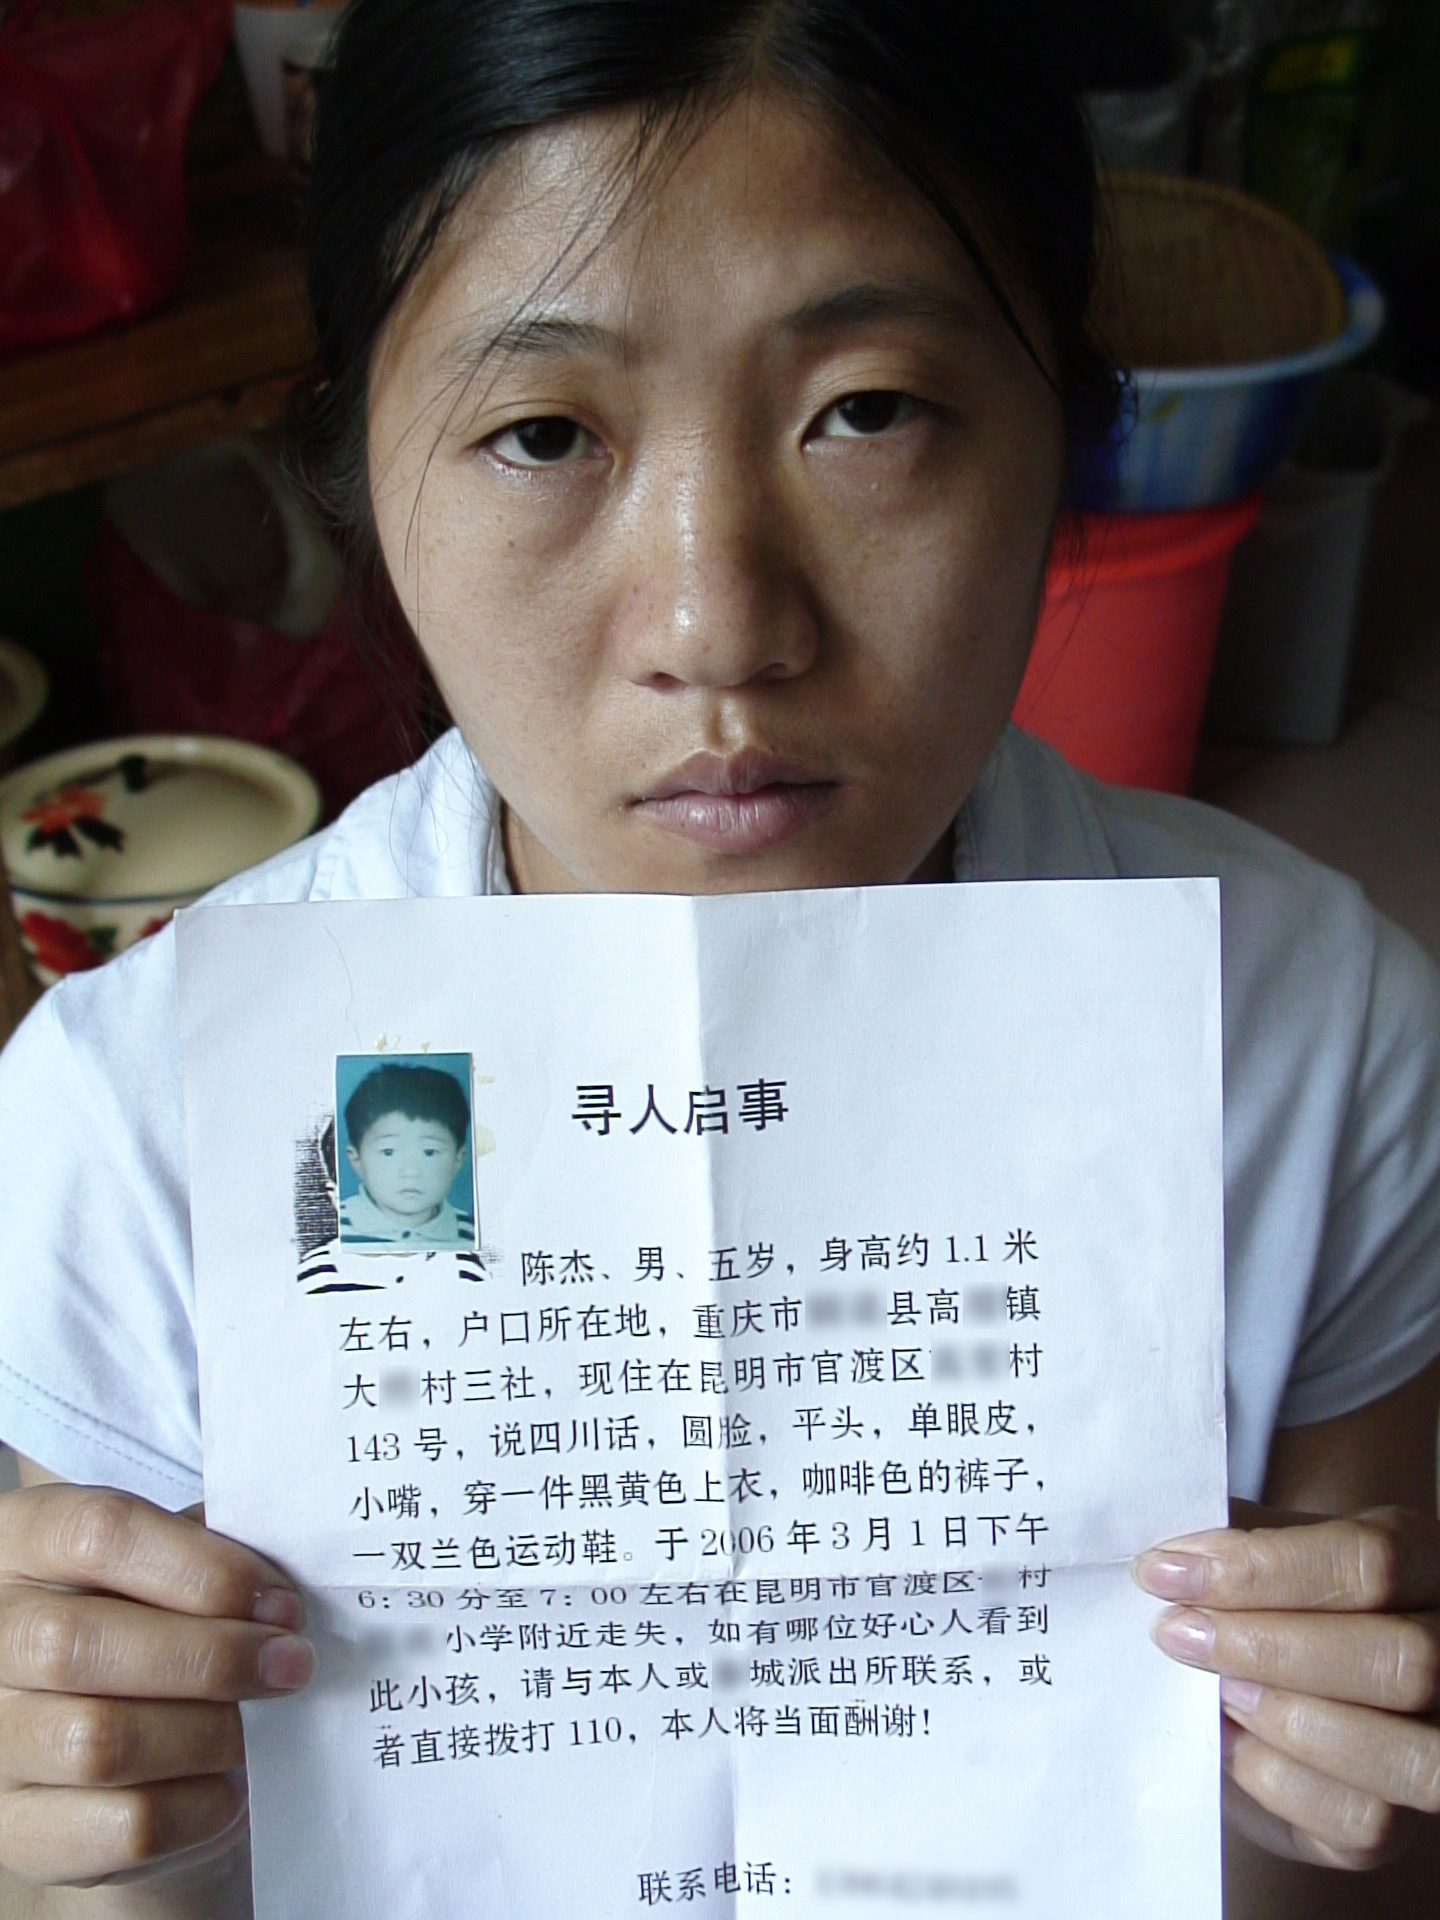 寻人启事
陈杰、男、五岁，身高约 1.1 米
左右，户口所在地，重庆市 县高 镇
大 村三社，现住在昆明市官渡区 村
143 号，说四川话，圆脸，平头，单眼皮，
小嘴，穿一件黑黄色上衣，咖啡色的裤子，
一双兰色运动鞋。于 2006 年 3 月 1 日下午
6：30 分至 7：00 左右在昆明市官渡区 村
小学附近走失，如有哪位好心人看到
此小孩，请与本人或 城派出所联系，或
者直接拨打 110，本人将当面酬谢！
联系电话：